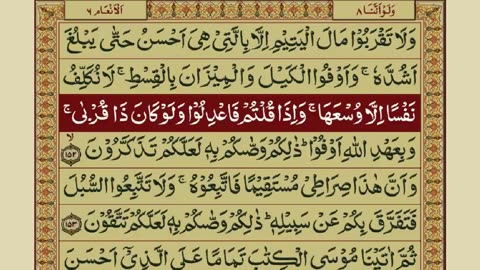 وَلَوْ اَنَّنَا ٨ اَلْاَنْعَام ٦
وَلَا تَقْرَبُوْا مَالَ الْيَتِيْمِ اِلَّا بِالَّتِيْ هِيَ اَحْسَنُ حَتّٰى يَبْلُغَ
اَشُدَّهٗ ۚ وَاَوْفُوا الْكَيْلَ وَالْمِيْزَانَ بِالْقِسْطِ ۚ لَا نُكَلِّفُ
نَفْسًا اِلَّا وُسْعَهَا ۚ وَاِذَا قُلْتُمْ فَاعْدِلُوْا وَلَوْ كَانَ ذَا قُرْبٰى ۚ
وَبِعَهْدِ اللّٰهِ اَوْفُوْا ؕ ذٰلِكُمْ وَصّٰىكُمْ بِهٖ لَعَلَّكُمْ تَذَكَّرُوْنَ ۙ ﴿۱۵۲﴾
وَاَنَّ هٰذَا صِرَاطِيْ مُسْتَقِيْمًا فَاتَّبِعُوْهُ ۚ وَلَا تَتَّبِعُوا السُّبُلَ
فَتَفَرَّقَ بِكُمْ عَنْ سَبِيْلِهٖ ؕ ذٰلِكُمْ وَصّٰىكُمْ بِهٖ لَعَلَّكُمْ تَتَّقُوْنَ ﴿۱۵۳﴾
ثُمَّ اٰتَيْنَا مُوْسَى الْكِتٰبَ تَمَامًا عَلَى الَّذِيْٓ اَحْسَنَ